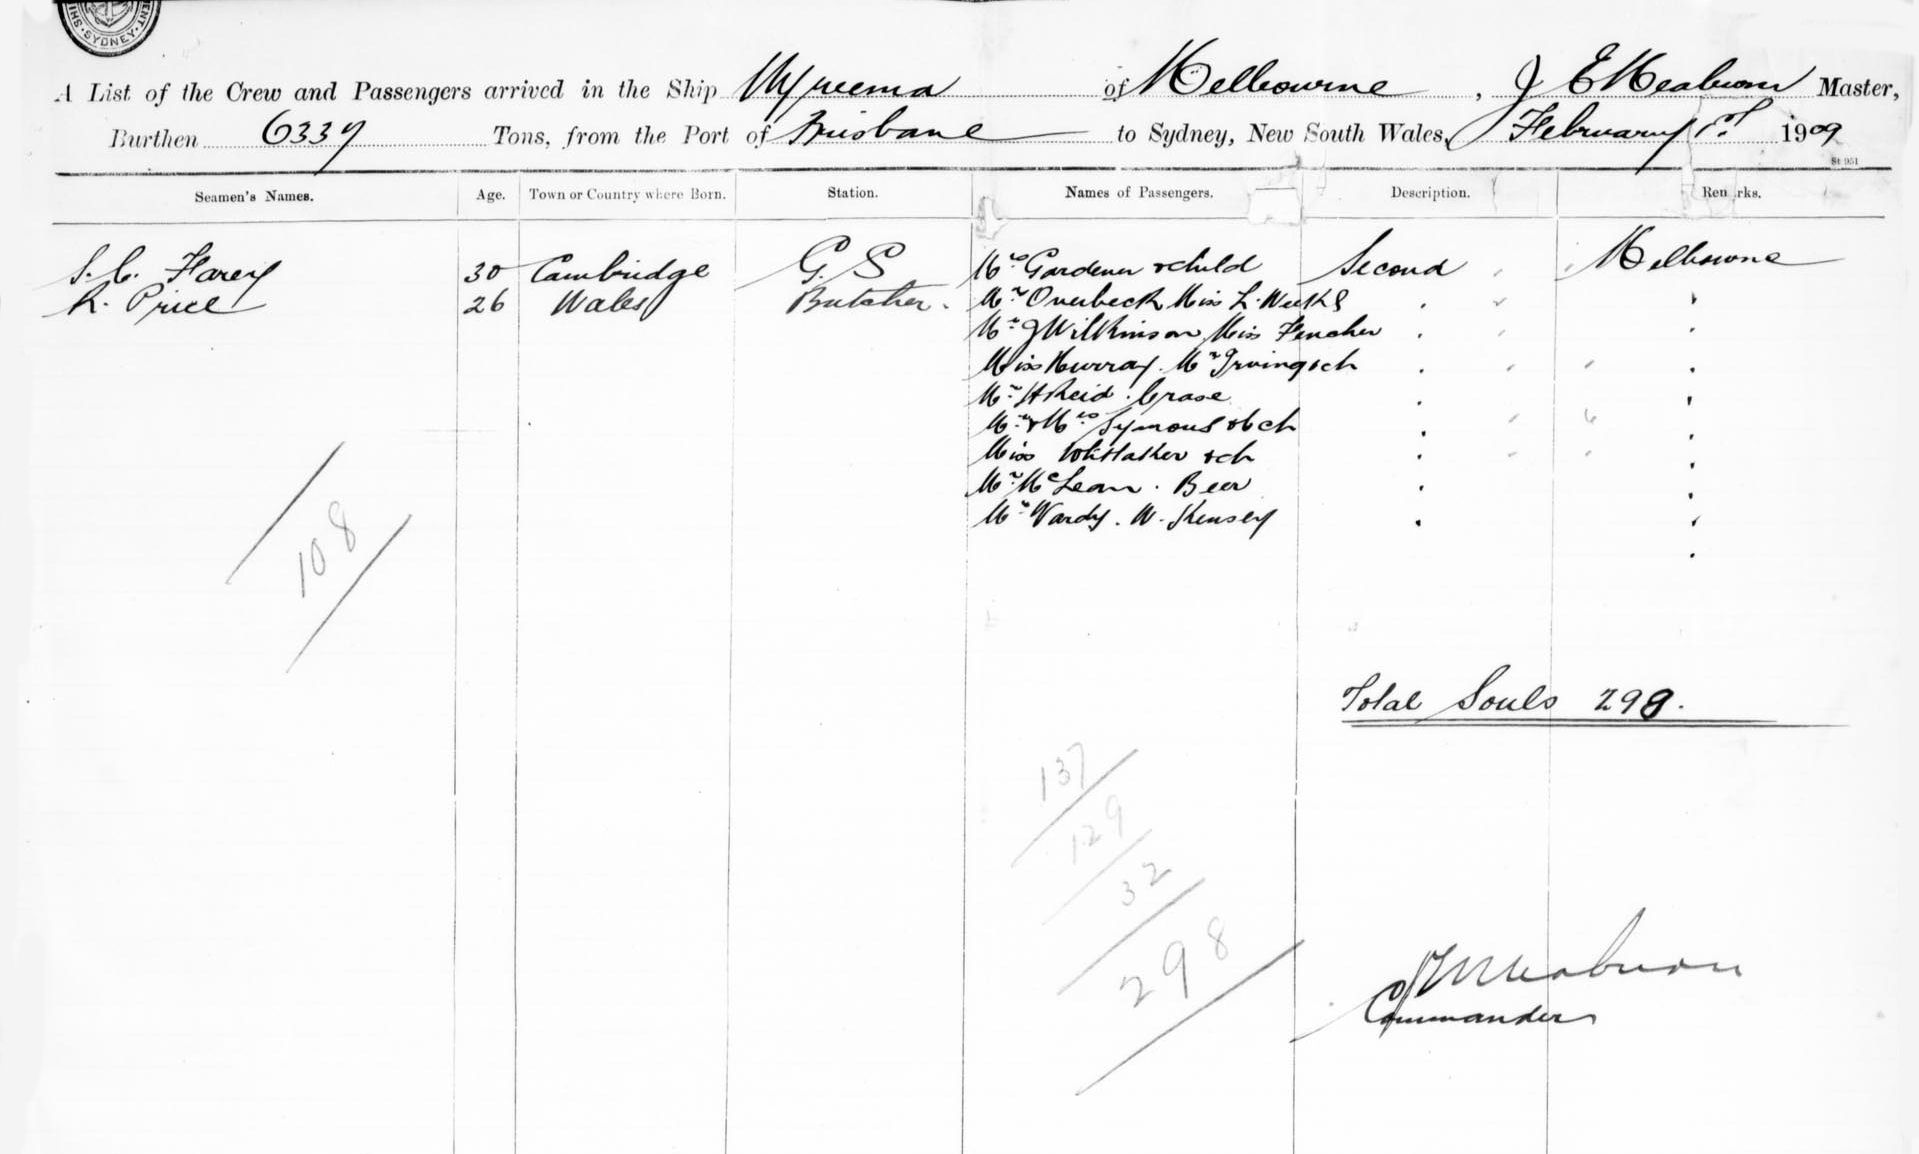 SYDNEY
A List of the Crew and Passengers arrived in the Ship Wyreema of Melbourne, J E Meaburn Master,
Burthen 6339 Tons, from the Port of Brisbane to Sydney, New South Wales, February 1st 1909
St 951
Seamen's Names. Age. Town or Country where Born. Station. Names of Passengers. Description. Rem rks.
S. C. Farey 30 Cambridge G. S Mrs Gardener & child Second Melbourne
R. Price 26 Wales Butcher. Mr Overbeck Miss L. Weeks
Mr J Wilkinson Miss
Miss Murray. Mr Irving & ch
Mr H Reid. Crase
Mr & Mrs Symons & 6 ch
Miss Whittaker & ch
Mr McLean. Beer
Mr Vardy. W. Kensey
108
Total Souls 298.
137
129
32
298
J E Meaburn
Commander